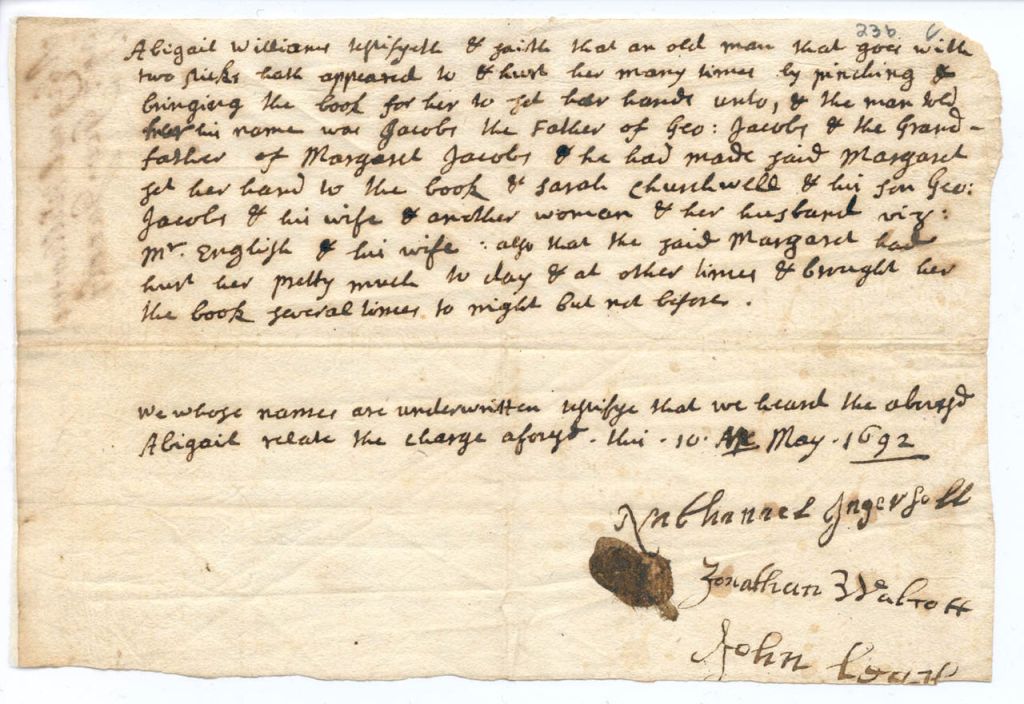 236 6.
Abigail Williams testifyeth & saith that an old man that goes with
two sticks hath appeared to & hurt her many times by pinching &
bringing the book for her to set her hand unto, & the man told
her his name was Jacobs the Father of Geo: Jacobs & the Grand-
father of Margaret Jacobs & he had made said Margaret
set her hand to the book & Sarah Churchwell & his son Geo:
Jacobs & his wife & another woman & her husband viz:
Mr. English & his wife : also that the said Margaret had
hurt her pretty much to day & at other times & brought her
the book several times to night but not before.
we whose names are underwritten testifye that we heard the abovesd
Abigail relate the charge aforesd. this . 10. May . 1692
Nathanael Ingersoll
Jonathan Walcott
John